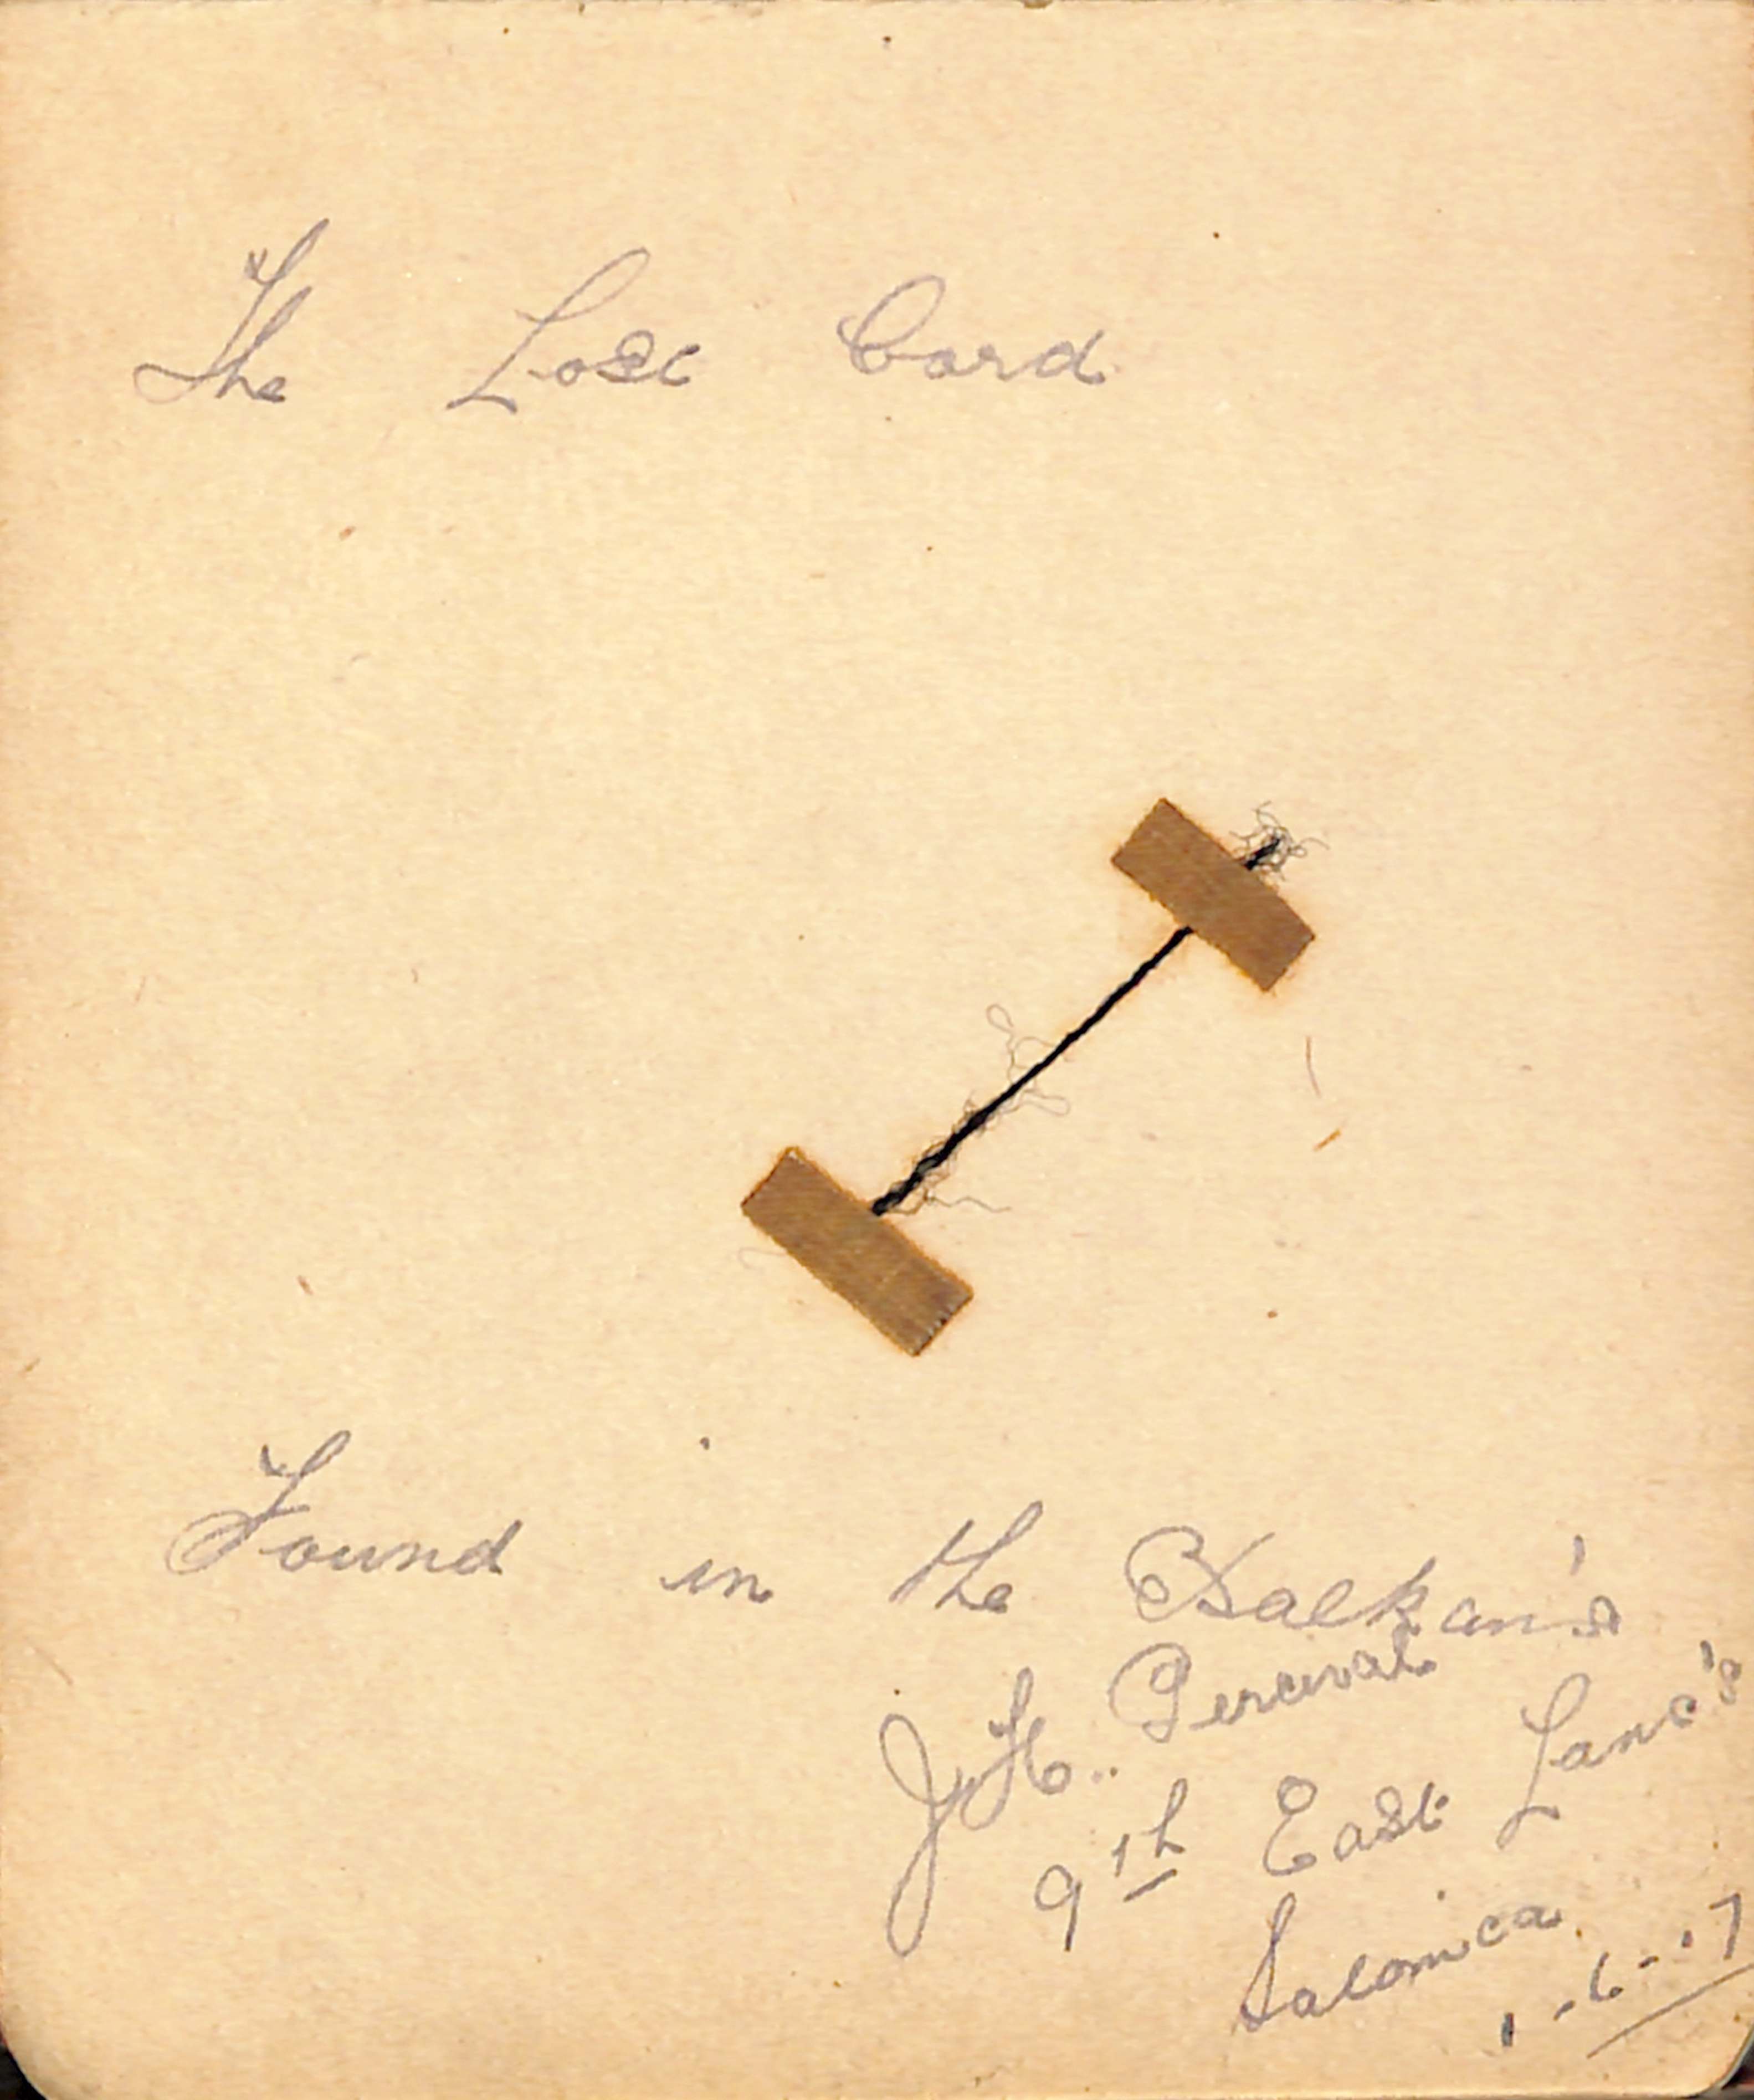 The Lost Cord
Found in the Balkan's
J. H. Percival
9th East Lanc's
Salonica
1-6-17